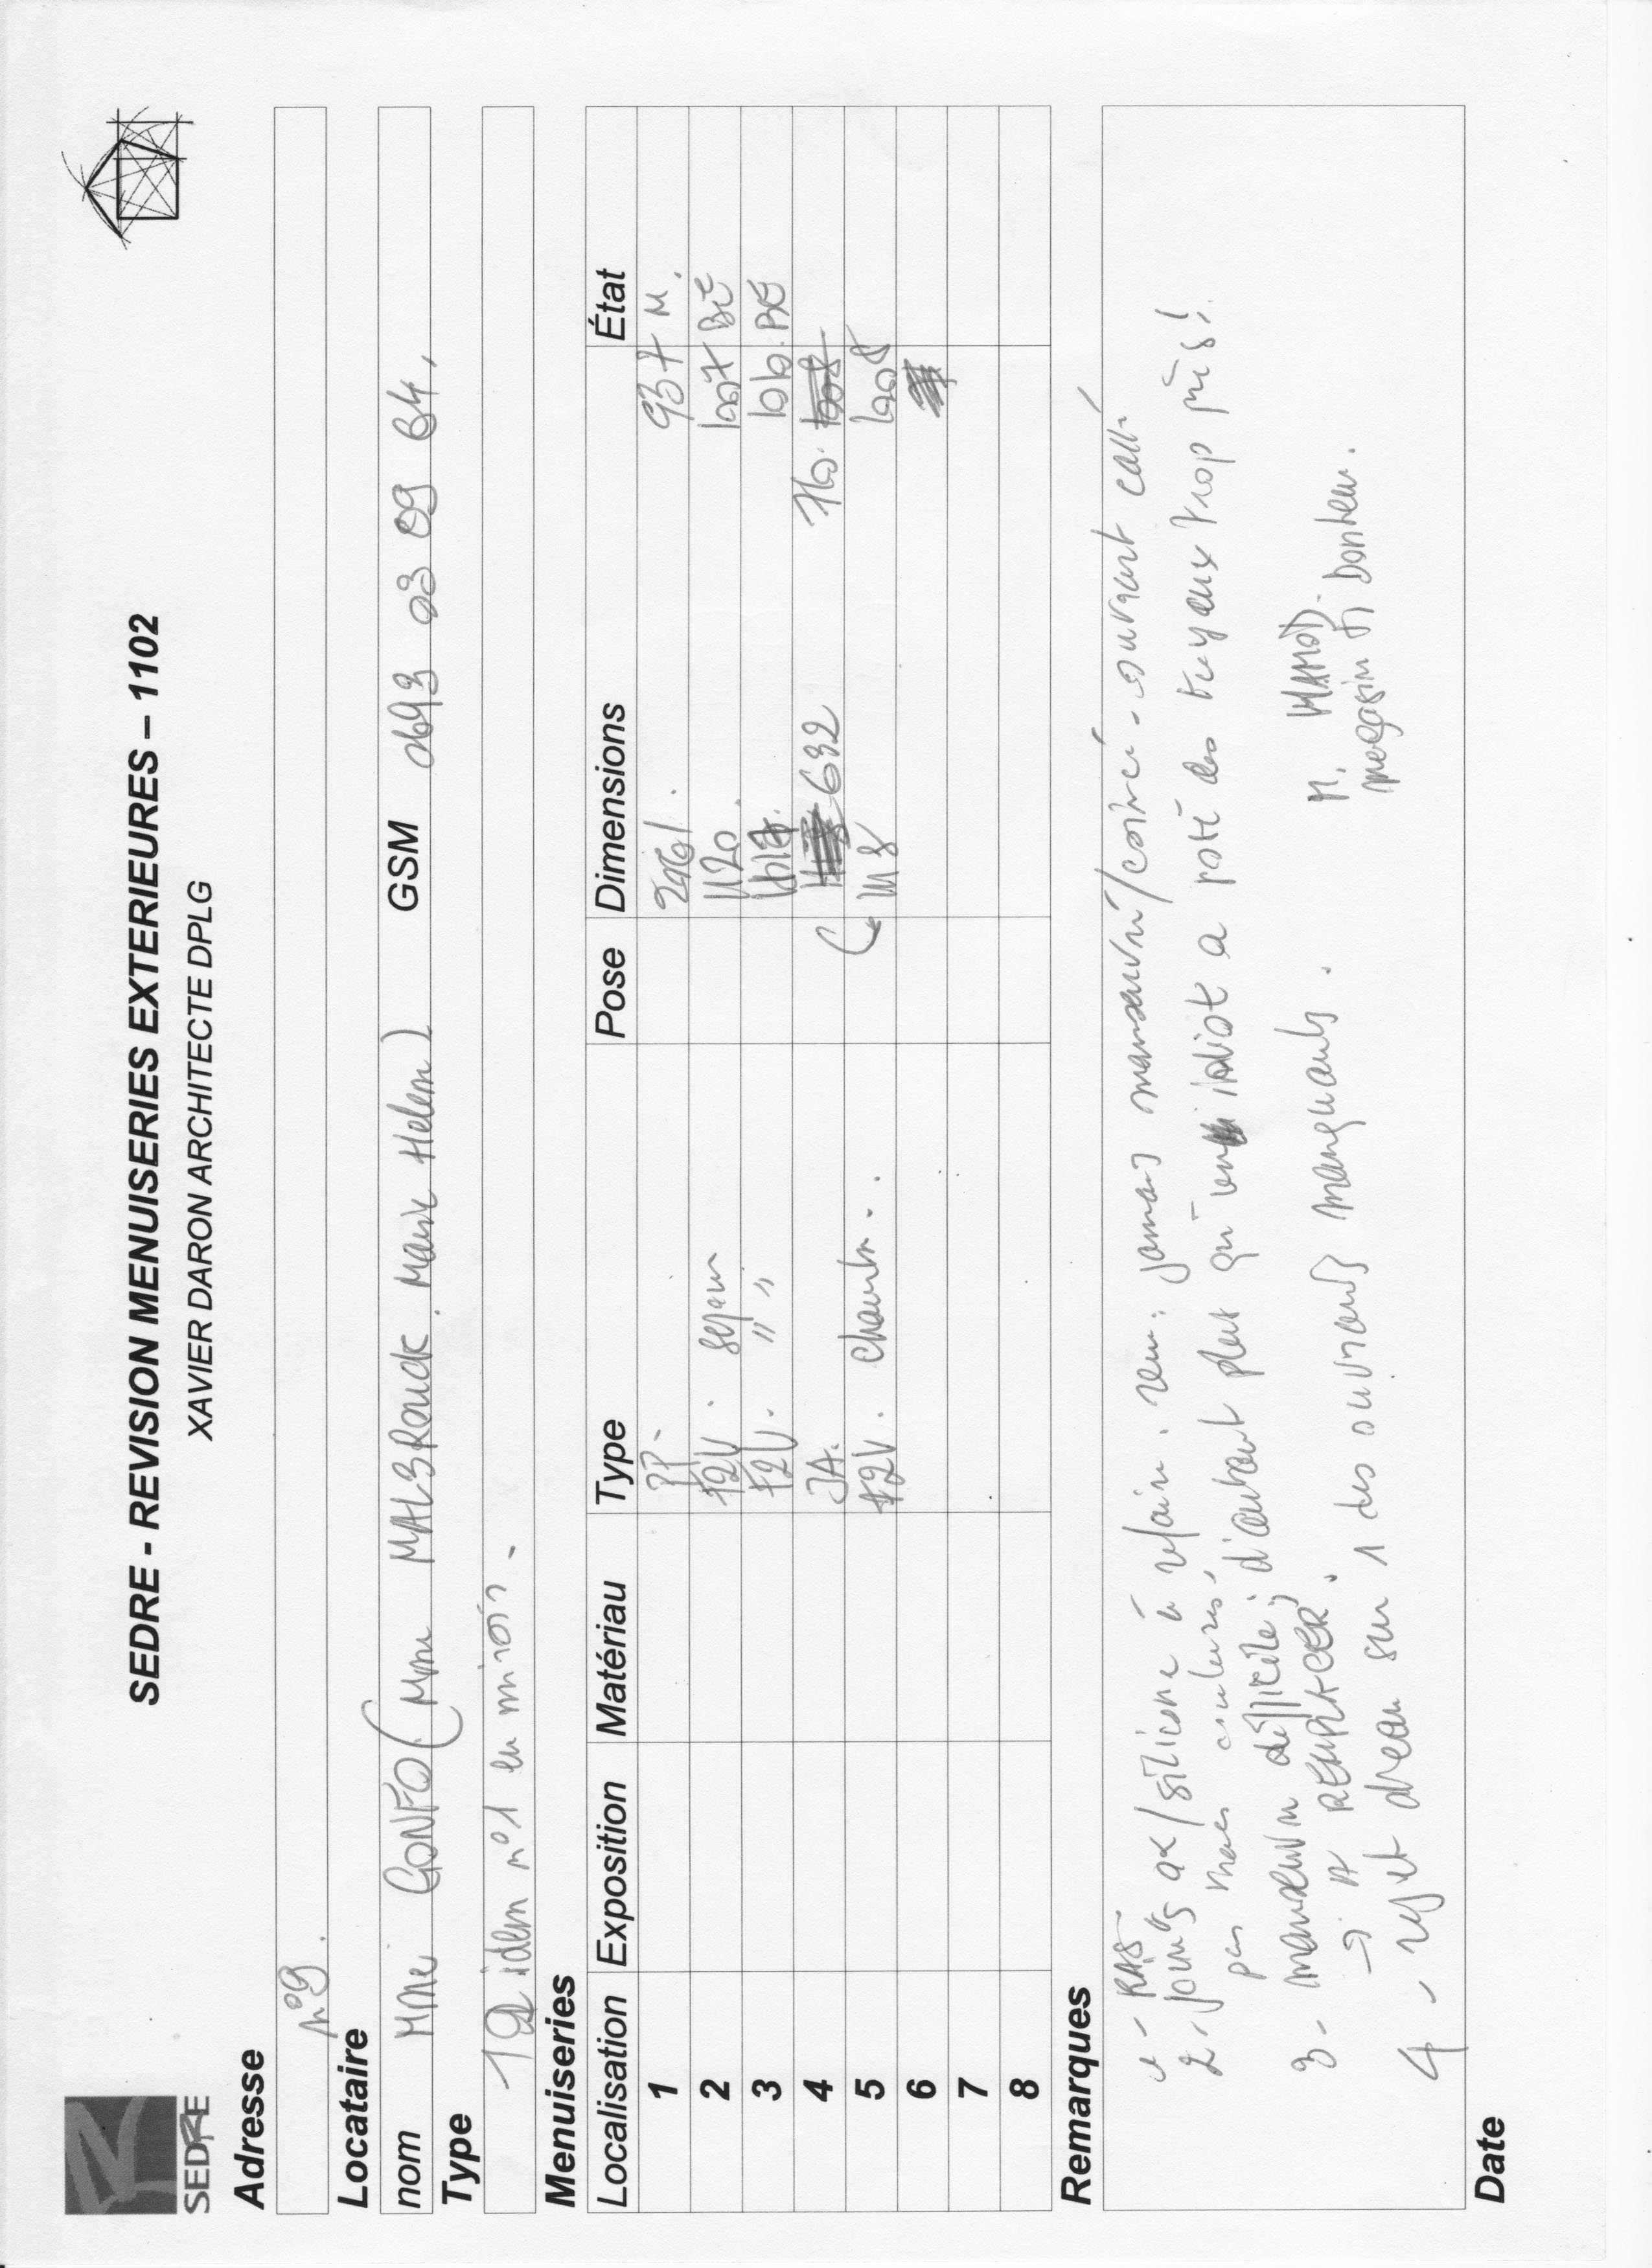 SEDRE - REVISION MENUISERIES EXTERIEURES – 1102
XAVIER DARON ARCHITECTE DPLG
SEDRE
Adresse
n°9.
Locataire
nom Mme GONFO (Mme MALBROUCK. Marie Helen) GSM 0693 03 09 64.
Type
idem n°1 en miroir.
Menuiseries
Localisation Exposition Matériau Type Pose Dimensions État
1 PP. 937 M.
2 F2V. sejour 1120 1007 BE
3 F2V. " " 1010. BE
4 JA. 632
5 F2V. chambre. 1118 1008
6
7
8
Remarques
1 - RAS
2 - joints silicone à refaire. rem: jamais manoeuvré/coincé - ouvrant calé
par mes couleurs, d'autant plus qu'un idiot a posé des tuyaux trop près!
3 - manoeuvre difficile;
→ A REMPLACER. M. HAMOD.
magasin ti bonheur.
4 - rejet d'eau sur 1 des ouvrants manquants.
Date